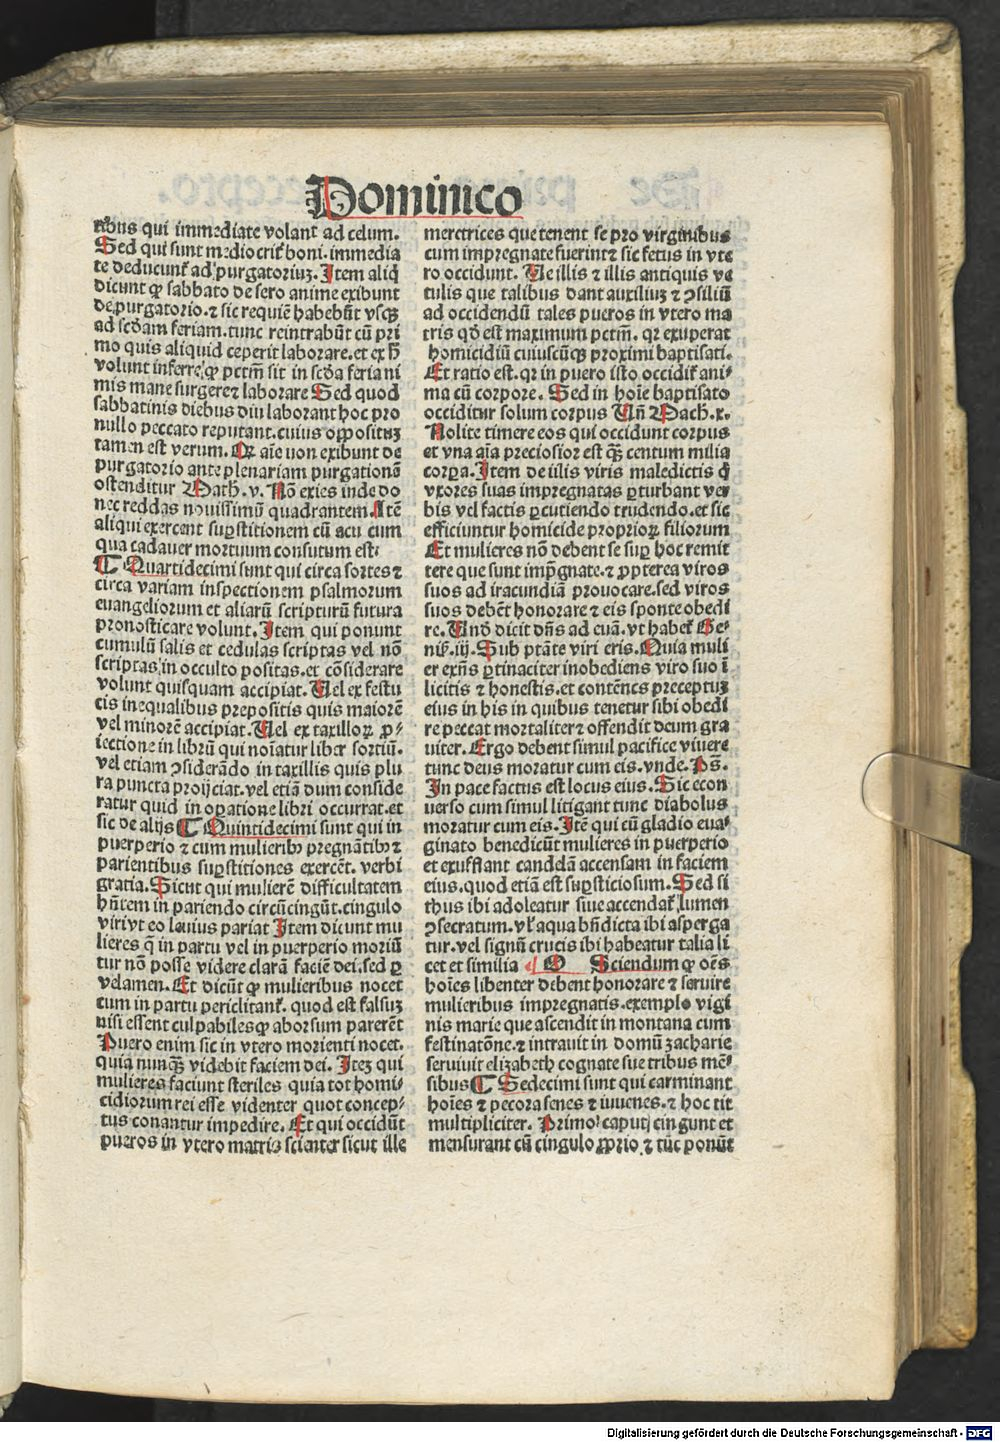 Dominico
nibus qui immediate volant ad celum.
Sed qui sunt mediocrit̃ boni. immedia
te deducunt̃ ad purgatoriuʒ. Item aliq̃
dicunt ꝙ sabbato de sero anime exibunt
de purgatorio. ⁊ sic requiẽ habebũt vsqꝫ
ad scḋam feriam. tunc reintrabũt cũ pri
mo quis aliquid ceperit laborare. et ex h̃
volunt inferre ꝙ pctm̃ sit in scḋa feria ni
mis mane surgere ⁊ laborare Sed quod
sabbatinis diebus diu laborant hoc pro
nullo peccato reputant. cuius oppositũʒ
tamen est verum. Qꝛ aĩe non exibunt de
purgatorio ante plenariam purgationẽ
ostenditur Math. v. Nõ exies inde do
nec reddas nouissimũ quadrantem. Itẽ
aliqui exercent suꝑstitionem cũ acu cum
qua cadauer mortuum consutum est:
¶ Quartidecimi sunt qui circa sortes ⁊
circa variam inspectionem psalmorum
euangeliorum et aliarũ scripturũ futura
pronosticare volunt. Item qui ponunt
cumulũ salis et cedulas scriptas vel nõ
scriptas in occulto positas. et cõsiderare
volunt quisquam accipiat. Uel ex festu
cis inequalibus prepositis quis maiorẽ
vel minorẽ accipiat. Uel ex taxilloꝝ ꝓ⸗
iectione in librũ qui noĩatur liber sortiũ.
vel etiam ɔsiderãdo in taxillis quis plu
ra puncta proijciat. vel etiã dum conside
ratur quid in oꝑatione libri occurrat. et
sic de alijs ¶ Quintidecimi sunt qui in
puerperio ⁊ cum mulieribꝰ pregnãtibꝰ ⁊
parientibus suꝑstitiones exercẽt. verbi
gratia. Sicut qui mulierẽ difficultatem
hñtem in pariendo circũcingũt. cingulo
viri vt eo leuius pariat Item dicunt mu
lieres q̃ in partu vel in puerperio moriũ
tur nõ posse videre clarã faciẽ dei. sed ꝑ
velamen. Et dicũt ꝙ mulieribus nocet
cum in partu periclitant̃. quod est falsuʒ
nisi essent culpabiles ꝙ aborsum parerẽt
Puero enim sic in vtero morienti nocet.
quia nunqꝫ̃ videbit faciem dei. Iteʒ qui
mulieres faciunt steriles quia tot homi⸗
cidiorum rei esse videntur quot concep⸗
tus conantur impedire. Et qui occidũt
pueros in vtero matris scienter sicut ille
meretrices que tenent se pro virginibus
cum impregnate fuerint ⁊ sic fetus in vte
ro occidunt. Ue illis ⁊ illis antiquis ve
tulis que talibus dant auxiliuʒ ⁊ ɔsiliũ
ad occidendũ tales pueros in vtero ma
tris qḋ est maximum pctm̃. qꝛ exuperat
homicidiũ cuiuscũqꝫ proximi baptisati.
Et ratio est. qꝛ in puero isto occidit̃ ani⸗
ma cũ corpore. Sed in hoĩe baptisato
occiditur solum corpus Uñ Math. x.
Nolite timere eos qui occidunt corpus
et vna aĩa preciosior est qꝫ̃ centum milia
corpꝑa. Item de illis viris maledictis q̃
vxores suas impregnatas ꝑturbant ver
bis vel factis ꝑcutiendo trudendo. et sic
efficiuntur homicide proprioꝝ filiorum
Et mulieres nõ debent se suꝑ hoc remit
tere que sunt imp̃gnate. ⁊ ꝓpterea viros
suos ad iracundiã prouocare. sed viros
suos debẽt honorare ⁊ eis sponte obedi
re. Unḋ dicit dñs ad euã. vt habet̃ Ge⸗
ni. iij. Sub ptãte viri eris. Quia muli
er exñs ꝑtinaciter inobediens viro suo ĩ
licitis ⁊ honestis. et contẽnẽs preceptuʒ
eius in his in quibus tenetur sibi obedi
re peccat mortaliter ⁊ offendit deum gra
uiter. Ergo debent simul pacifice viuere
tunc deus moratur cum eis. vnde. Ps̃.
In pace factus est locus eius. Sic econ
uerso cum simul litigant tunc diabolus
moratur cum eis. Itẽ qui cũ gladio eua⸗
ginato benedicũt mulieres in puerperio
et exufflant canddã accensam in faciem
eius. quod etiã est suꝑsticiosum. Sed si
thus ibi adoleatur siue accendat̃ lumen
ɔsecratum. vl̃ aqua bñdicta ibi asperga
tur. vel signũ crucis ibi habeatur talia li
cet et similia ¶ O Sciendum ꝙ oẽs
hoĩes libenter debent honorare ⁊ seruire
mulieribus impregnatis. exemplo virgi
nis marie que ascendit in montana cum
festinatõne. ⁊ intrauit in domũ zacharie
seruiuit elizabeth cognate sue tribus mẽ⸗
sibus ¶ Sedecimi sunt qui carminant
hoĩes ⁊ pecora senes ⁊ iuuenes. ⁊ hoc fit
multipliciter. Primo caput cingunt et
mensurant cũ cingulo ꝓprio. ⁊ tũc ponũt
Digitalisierung gefördert durch die Deutsche Forschungsgemeinschaft - DFG